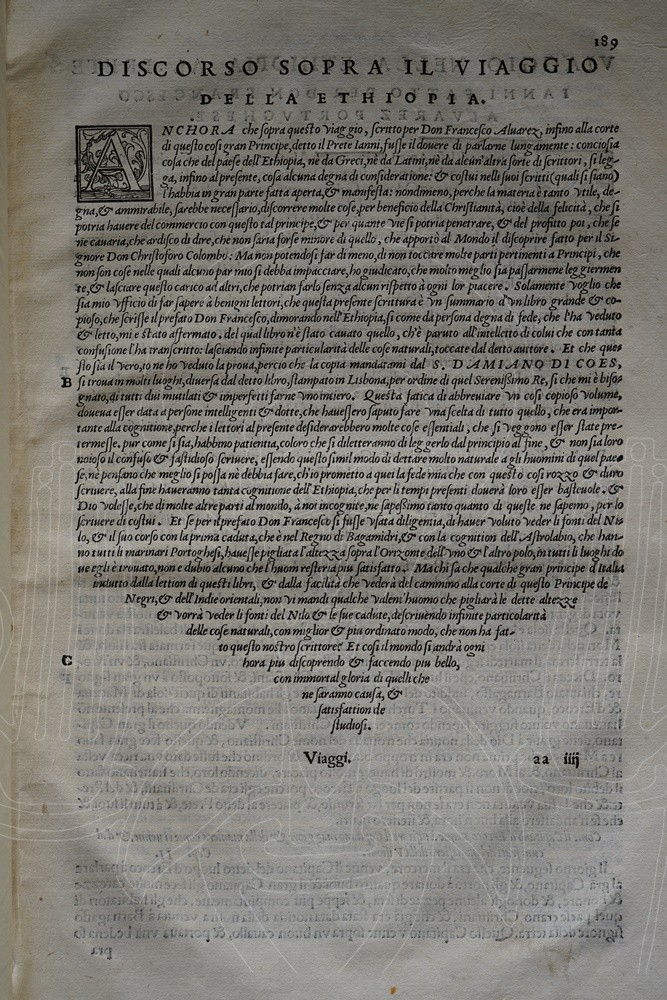 189
DISCORSO SOPRA IL VIAGGIO
DELLA ETHIOPIA.
ANCHORA che sopra questo viaggio, scritto per Don Francesco Aluarez, infino alla corte
di questo cosi gran Principe, detto il Prete Ianni, fusse il douere di parlarne lungamente: conciosia
cosa che del paese dell'Ethiopia, nè da Greci, nè da Latini, nè da alcun'altra sorte di scrittori, si leg-
ga, infino al presente, cosa alcuna degna di consideratione: & costui nelli suoi scritti (quali si siano)
l'habbia in gran parte fatta aperta, & manifesta: nondimeno, perche la materia è tanto vtile, de-
gna, & ammirabile, sarebbe necessario, discorrere molte cose, per beneficio della Christianità, cioè della felicità, che si
potria hauere del commercio con questo tal principe, & per quante vie si potria penetrare, & del profitto poi, che se
ne cauaria, che ardisco di dire, che non saria forse minore di quello, che apportò al Mondo il discoprire fatto per il Si-
gnore Don Christoforo Colombo: Ma non potendosi far di meno, di non toccare molte parti pertinenti a Principi, che
non son cose nelle quali alcuno par mio si debba impacciare, ho giudicato, che molto meglio sia passarmene leggiermen
te, & lasciare questo carico ad altri, che potrian farlo senza alcun rispetto à ogni lor piacere. Solamente voglio che
sia mio vfficio di far sapere à benigni lettori, che questa presente scrittura è vn summario d'vn libro grande & co-
pioso, che scrisse il prefato Don Francesco, dimorando nell'Ethiopia, si come da persona degna di fede, che l'ha veduto
& letto, mi e stato affermato. del qual libro n'è stato cauato quello, ch'è paruto all'intelletto di colui che con tanta
confusione l'ha transcritto: lasciando infinite particularità delle cose naturali, toccate dal detto auttore. Et che que-
sto sia il vero, io ne ho veduto la proua, percio che la copia mandatami dal S. DAMIANO DI COES,
B
si troua in molti luoghi, diuersa dal detto libro, stampato in Lisbona, per ordine di quel Serenissimo Re, si che mi è biso-
gnato, di tutti dui mutilati & imperfetti farne vno intiero. Questa fatica di abbreuiare vn cosi copioso volume,
doueua esser data a persone intelligenti & dotte, che hauessero saputo fare vna scelta di tutto quello, che era impor-
tante alla cognitione, perche i lettori al presente desiderarebbero molte cose essentiali, che si veggono esser state pre-
termesse. pur come si sia, habbino patientia, coloro che si diletteranno di leggerlo dal principio al fine, & non sia loro
noioso il confuso & fastidioso scriuere, essendo questo simil modo di dettare molto naturale a gli huomini di quel pae-
se, ne pensano che meglio si possa nè debbia fare, ch'io prometto a quei la fede mia che con questo cosi rozzo & duro
scriuere, alla fine haueranno tanta cognitione dell'Ethiopia, che per li tempi presenti douerà loro esser basteuole. &
Dio volesse, che di molte altre parti al mondo, à noi incognite, ne sapessimo tanto quanto di queste ne sapemo, per lo
scriuere di costui. Et se per il prefato Don Francesco si fusse vsata diligentia, di hauer voluto veder li fonti del Ni-
lo, & il suo corso con la prima caduta, che è nel Regno di Bagamidri, & con la cognition dell'Astrolabio, che han-
no tutti li marinari Portoghesi, hauesse pigliata l'altezza sopra l'Orizonte dell'vno & l'altro polo, in tutti li luoghi do
ue egli è trouato, non e dubio alcuno che l'huom resteria piu satisfatto. Ma chi sa che qualche gran principe d'Italia
indutto dalla lettion di questi libri, & dalla facilità che vederà del cammino alla corte di questo Principe de
Negri, & dell'Indie orientali, non vi mandi qualche valent'huomo che pigliarà le dette altezze
& vorrà veder li fonti del Nilo & le sue cadute, descriuendo infinite particularità
delle cose naturali, con miglior & piu ordinato modo, che non ha fat-
to questo nostro scrittore? Et cosi il mondo si andrà ogni
C
hora piu discoprendo & faccendo piu bello,
con immortal gloria di quelli che
ne saranno causa, &
satisfattion de
studiosi.
Viaggi. aa iiij